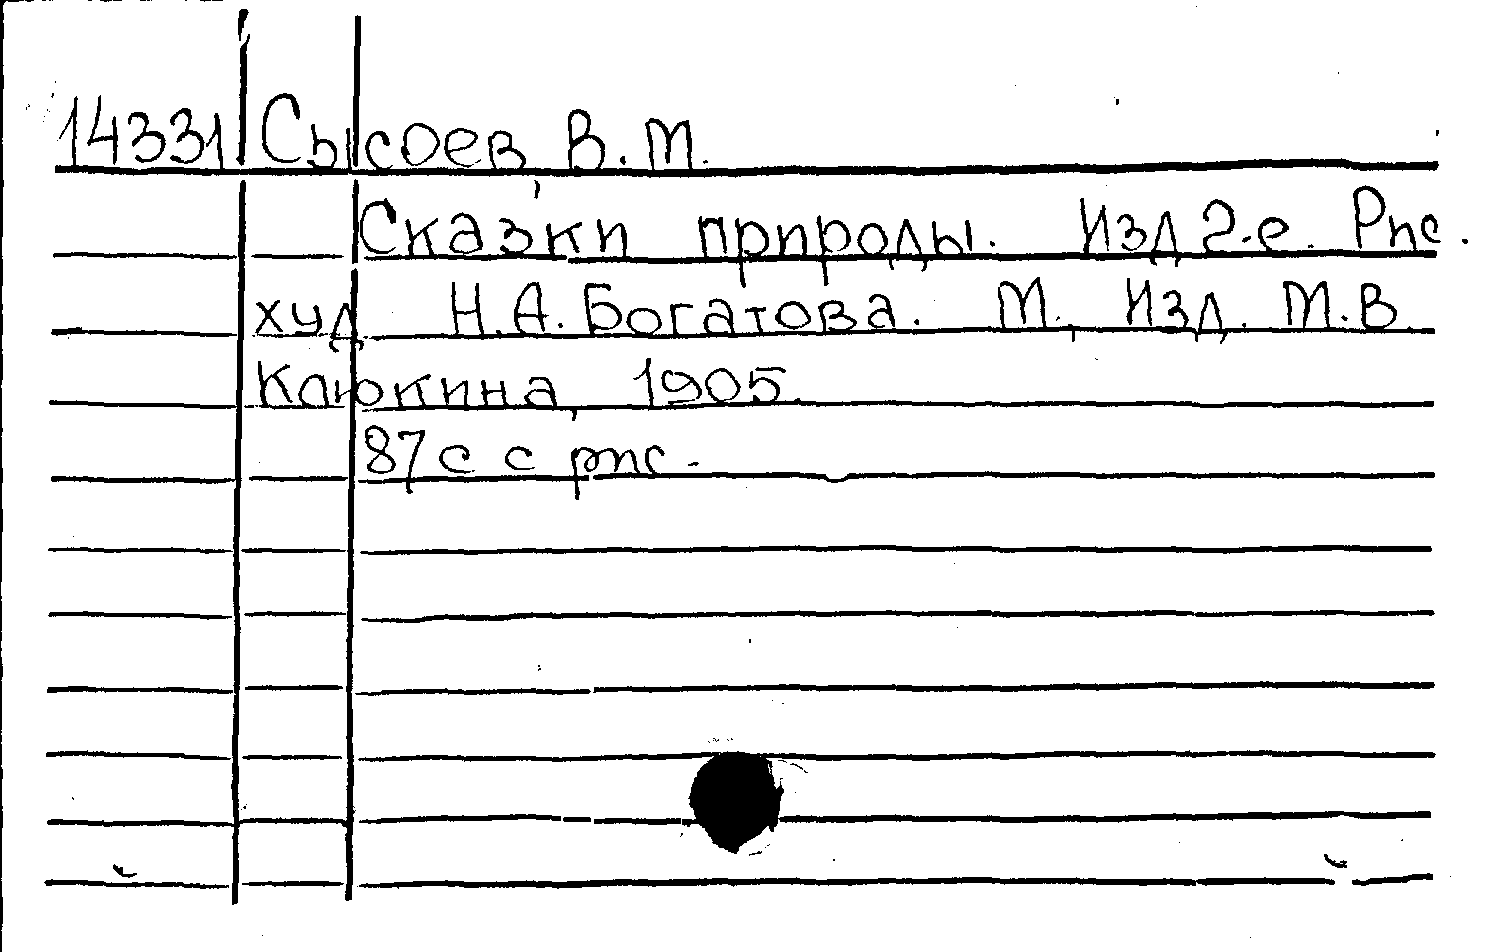 14331 Сысоев, В. М.
Сказки природы. Изд 2-е. Рис.
худ. Н. А. Богатова. М., Изд. М. В.
Клюкина, 1905.
87 с с рис.